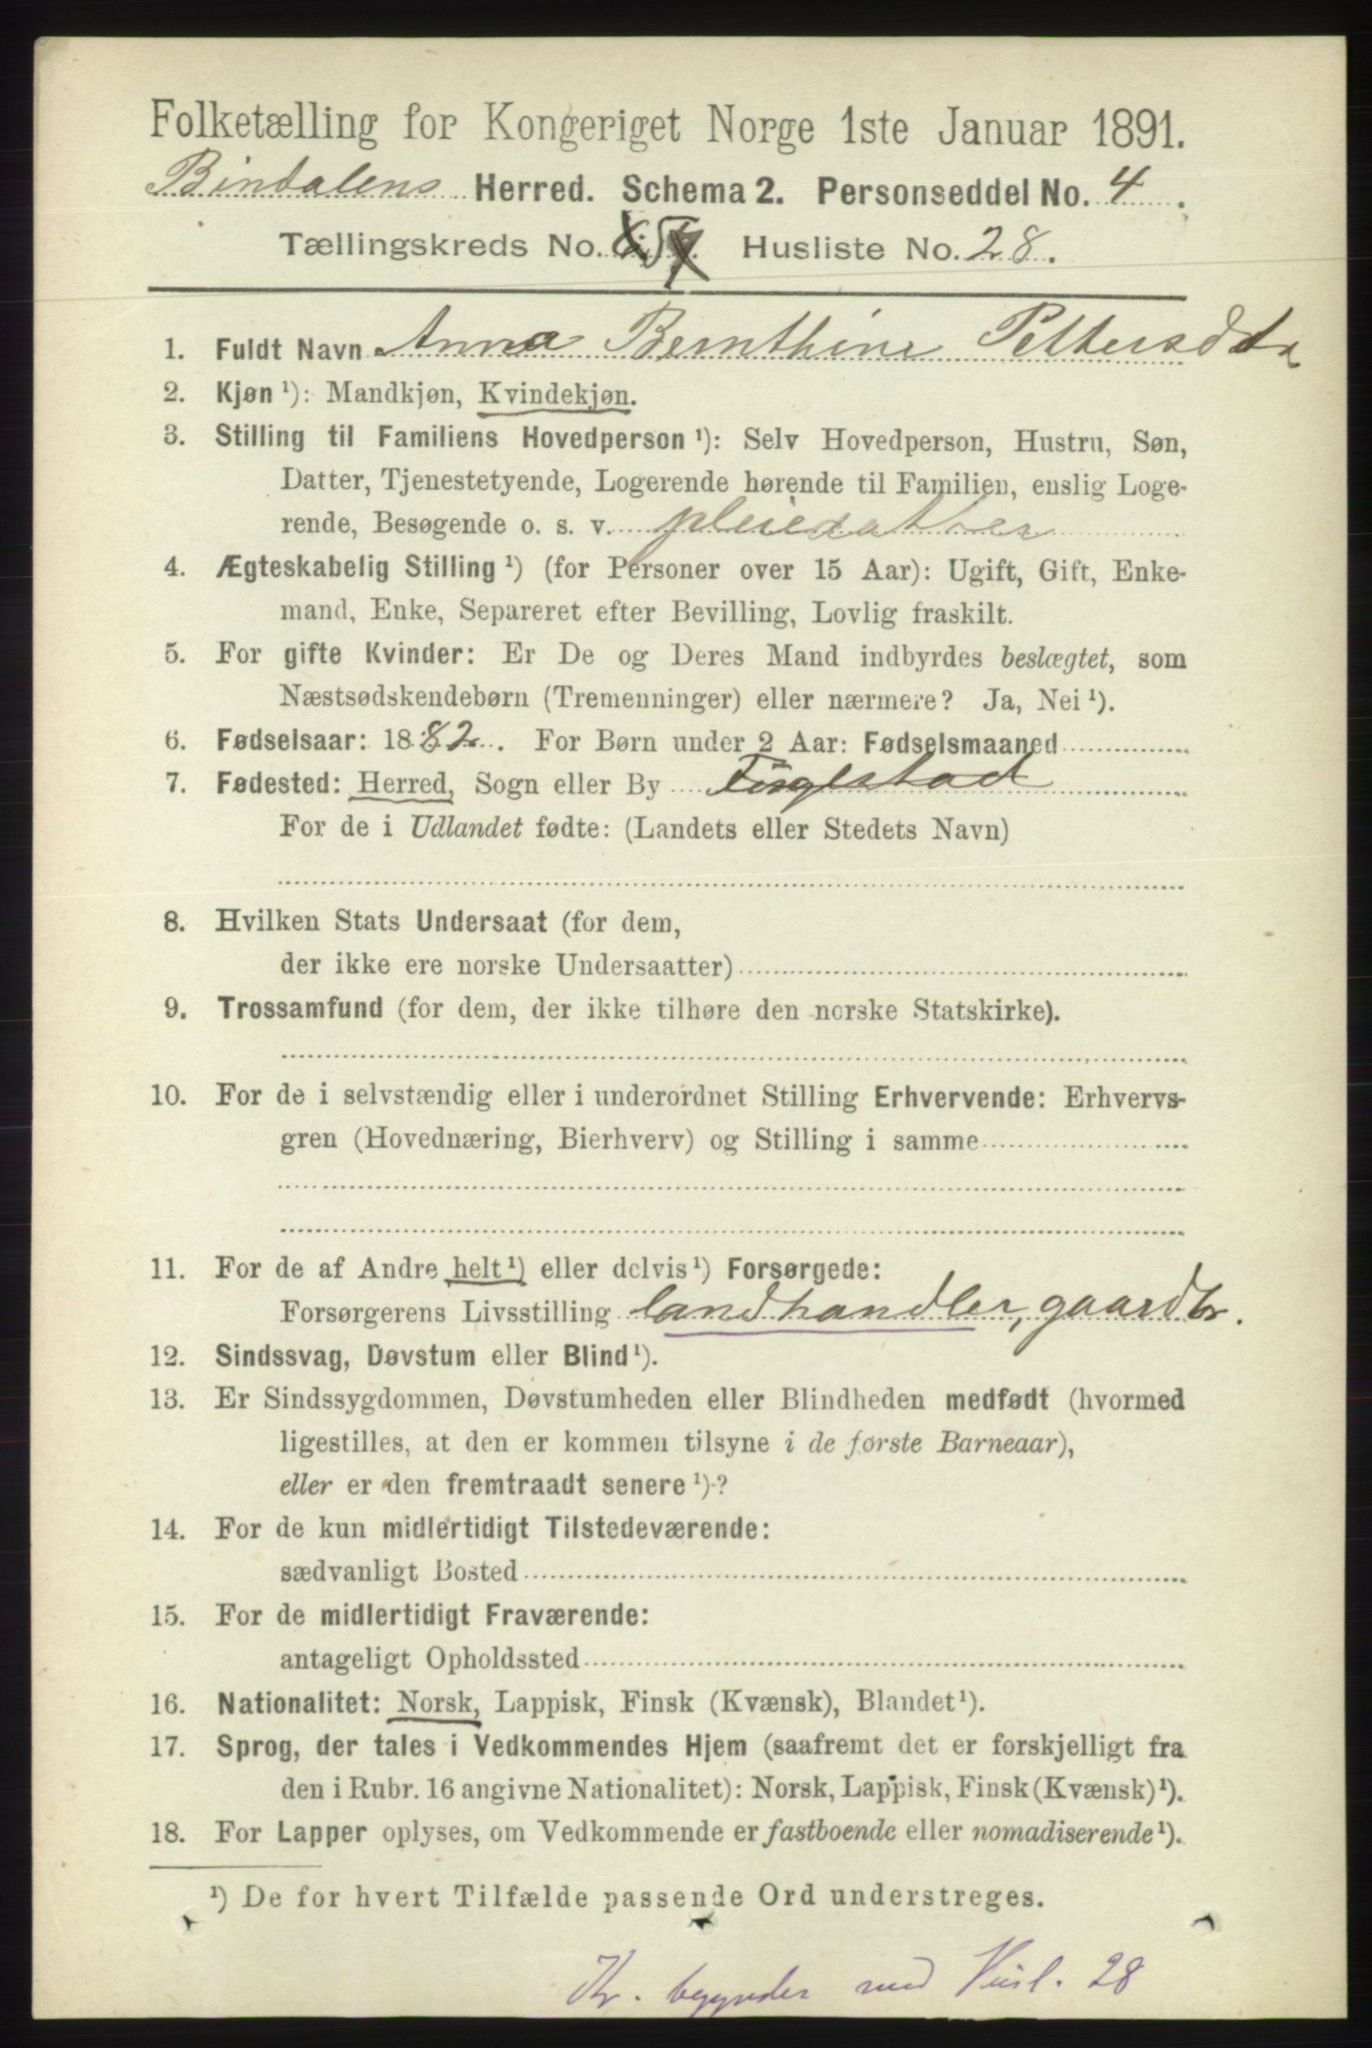 Folketælling for Kongeriget Norge 1ste Januar 1891.
Bindalens Herred. Schema 2. Personseddel No. 4.
Tællingskreds No. Husliste No. 28.
1. Fuldt Navn Anna Bernthine Pettersdtr
2. Kjøn ¹): Mandkjøn, Kvindekjøn.
3. Stilling til Familiens Hovedperson ¹): Selv Hovedperson, Hustru, Søn,
Datter, Tjenestetyende, Logerende hørende til Familien, enslig Loge-
rende, Besøgende o. s. v. pleiedatter
4. Ægteskabelig Stilling ¹) (for Personer over 15 Aar): Ugift, Gift, Enke-
mand, Enke, Separeret efter Bevilling, Lovlig fraskilt.
5. For gifte Kvinder: Er De og Deres Mand indbyrdes beslægtet, som
Næstsødskendebørn (Tremenninger) eller nærmere? Ja, Nei ¹).
6. Fødselsaar: 1882. For Børn under 2 Aar: Fødselsmaaned
7. Fødested: Herred, Sogn eller By
For de i Udlandet fødte: (Landets eller Stedets Navn)
8. Hvilken Stats Undersaat (for dem,
der ikke ere norske Undersaatter)
9. Trossamfund (for dem, der ikke tilhøre den norske Statskirke).
10. For de i selvstændig eller i underordnet Stilling Erhvervende: Erhvervs-
gren (Hovednæring, Bierhverv) og Stilling i samme
11. For de af Andre helt ¹) eller delvis ¹) Forsørgede:
Forsørgerens Livsstilling landhandler, gaardbr.
12. Sindssvag, Døvstum eller Blind ¹).
13. Er Sindssygdommen, Døvstumheden eller Blindheden medfødt (hvormed
ligestilles, at den er kommen tilsyne i de første Barneaar),
eller er den fremtraadt senere ¹)?
14. For de kun midlertidigt Tilstedeværende:
sædvanligt Bosted
15. For de midlertidigt Fraværende:
antageligt Opholdssted
16. Nationalitet: Norsk, Lappisk, Finsk (Kvænsk), Blandet ¹).
17. Sprog, der tales i Vedkommendes Hjem (saafremt det er forskjelligt fra
den i Rubr. 16 angivne Nationalitet): Norsk, Lappisk, Finsk (Kvænsk) ¹).
18. For Lapper oplyses, om Vedkommende er fastboende eller nomadiserende ¹).
¹) De for hvert Tilfælde passende Ord understreges.
Kr. begynder med Husl. 28